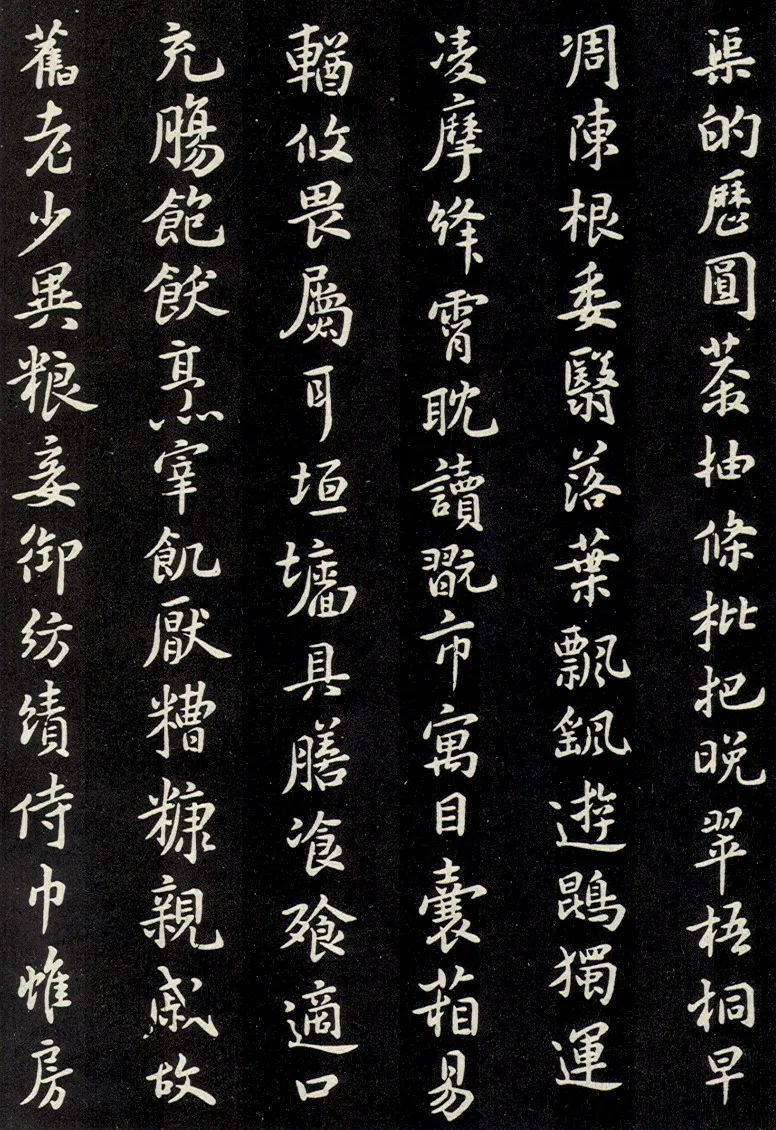 渠的歷圓莽抽條枇把晚翠梧桐早
凋陳根委翳落葉飄颻遊鵾獨運
凌摩絳霄耽讀翫市寓目囊箱易
輶攸畏屬耳垣墻具膳飡飱適口
充腸飽飫烹宰飢厭糟糠親戚故
舊老少異粮妾御紡績侍巾帷房